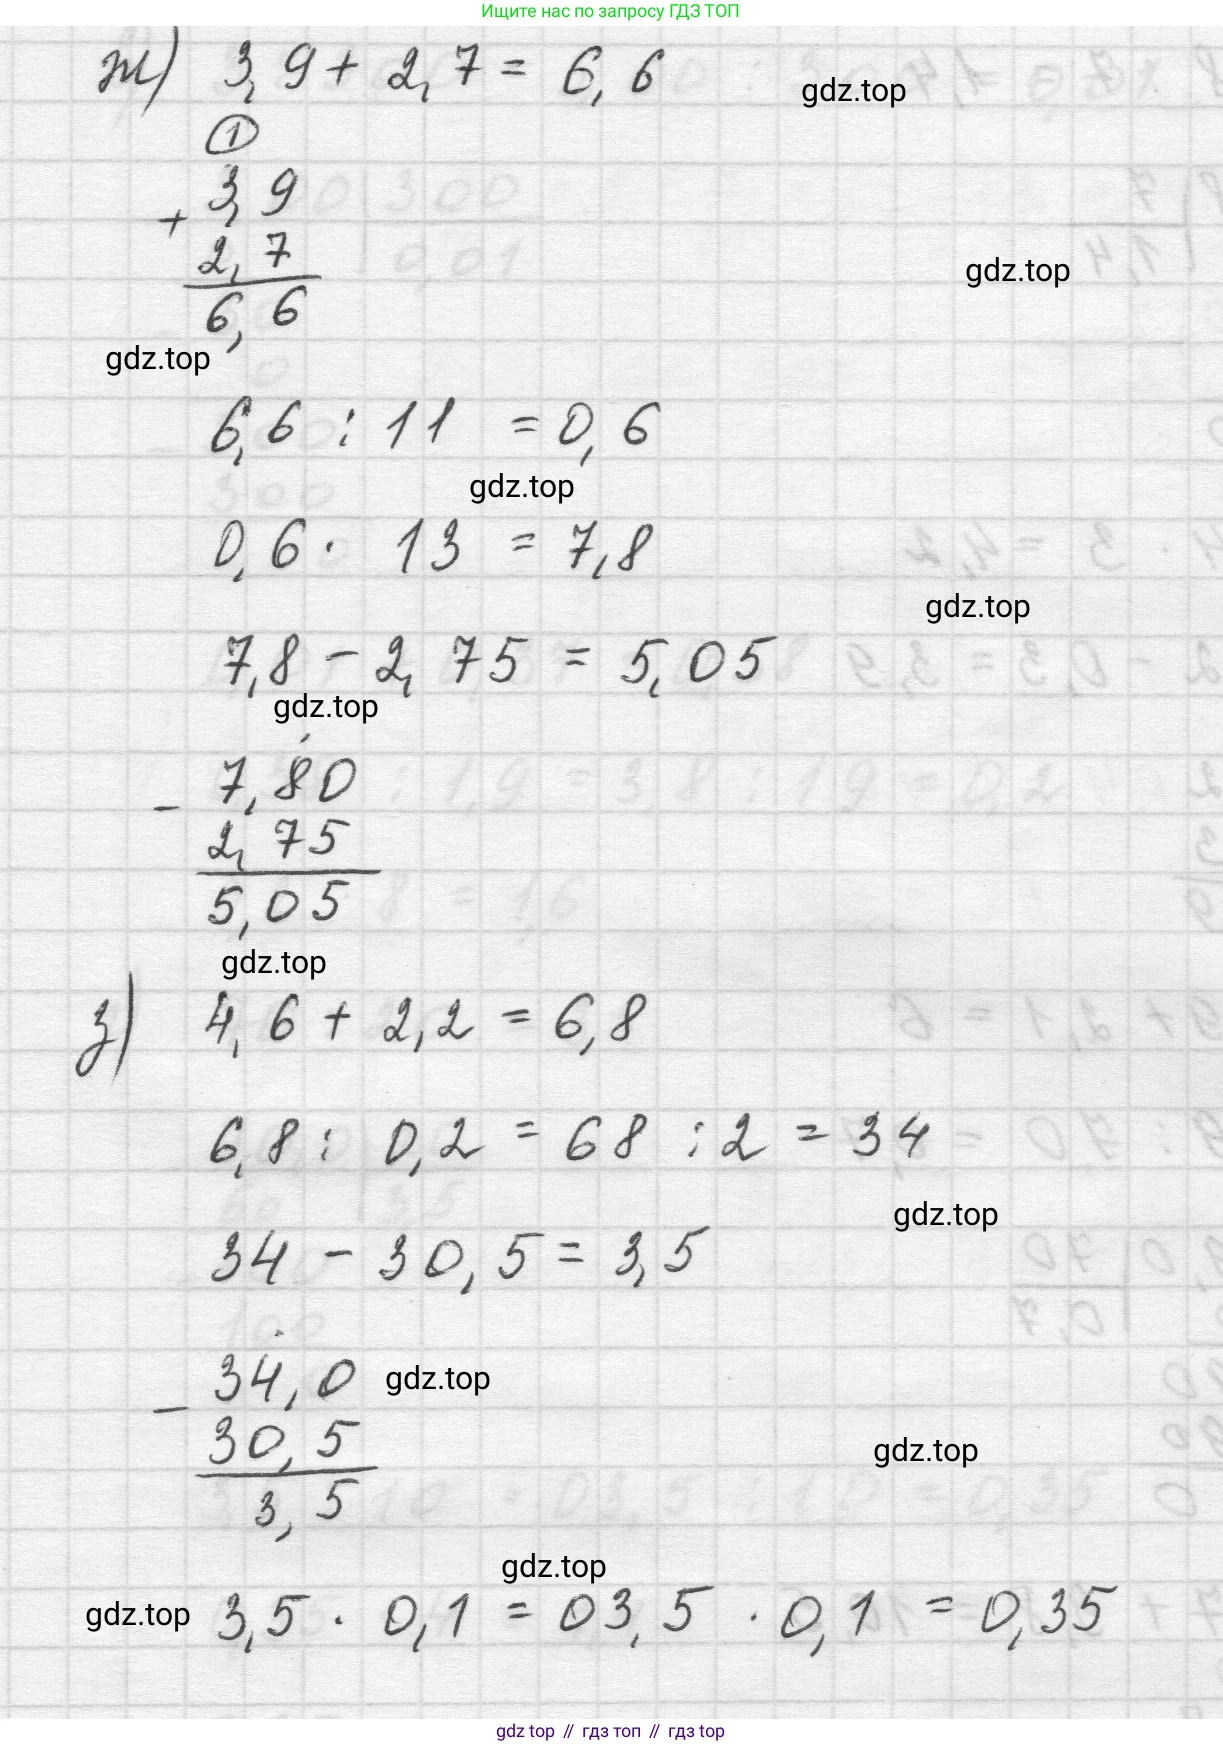 Ищите нас по запросу ГДЗ ТОП
ж) 3,9 + 2,7 = 6,6
gdz.top
1
3,9
+
2,7
gdz.top
6,6
gdz.top
6,6 : 11 = 0,6
gdz.top
0,6 · 13 = 7,8
gdz.top
7,8 - 2,75 = 5,05
gdz.top
7,80
-
2,75
5,05
gdz.top
з) 4,6 + 2,2 = 6,8
6,8 : 0,2 = 68 : 2 = 34
gdz.top
34 - 30,5 = 3,5
34,0 gdz.top
-
30,5
gdz.top
3,5
gdz.top
gdz.top 3,5 · 0,1 = 03,5 · 0,1 = 0,35
gdz top // гдз топ // гдз top